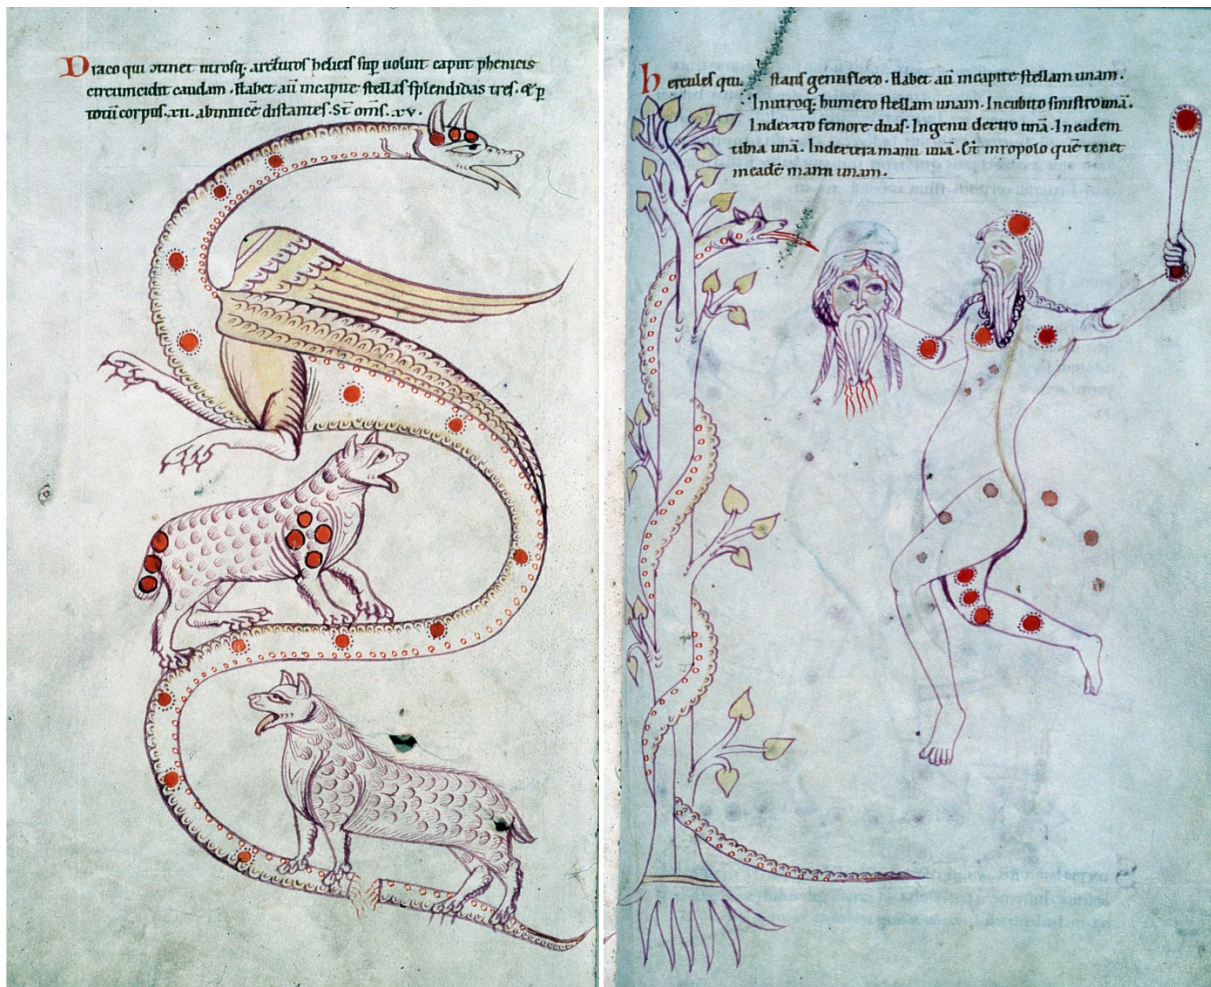 Draco qui
caput phenicis
circumcidit caudam. Habet aũ incapite stellas splendidas tres. &p
totũ corpus. xii. abinuicẽ distantes. St̃ om̃s. xv.
hercules qui. stans genu flexo. Habet aũ incapite stellam unam.
Inutroq; humero stellam unam. Incubito sinistro unã.
Indextro femore duas. Ingenu dextro unã. Ineadem
tibia unã. Indextera manu unã. Et inropolo quẽ tenet
ineadẽ manu unam.